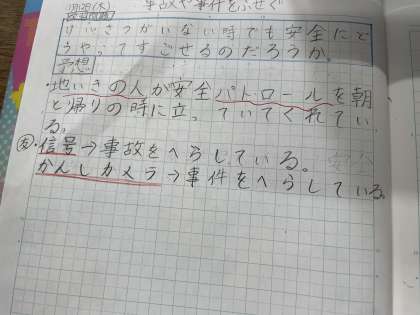 事故や事件をふせぐ
学習問題
けいさつがいない時でも安全にど
うやってすごせるのだろうか。
予想
・地いきの人が安全パトロールを朝
と帰りの時に立っていてくれてい
る。
友・信号→事故をへらしている。
かんしカメラ→事件をへらしている。